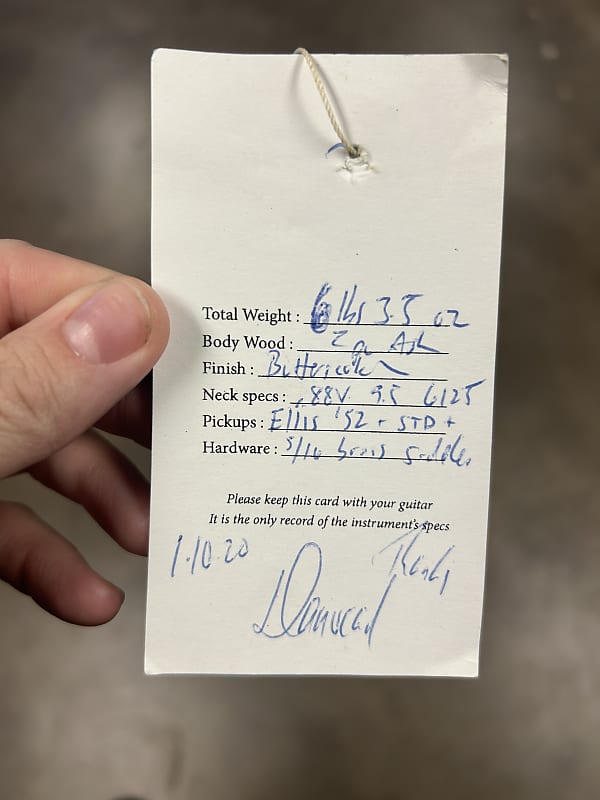 Total Weight : 6 lbs 3.5 oz
Body Wood : 2 pc Ash
Finish :
Neck specs : .88V 9.5 6125
Pickups : Ellis '52 - STD +
Hardware : 5/16 brass saddles
Please keep this card with your guitar
It is the only record of the instrument's specs
1.10.20
Thanks